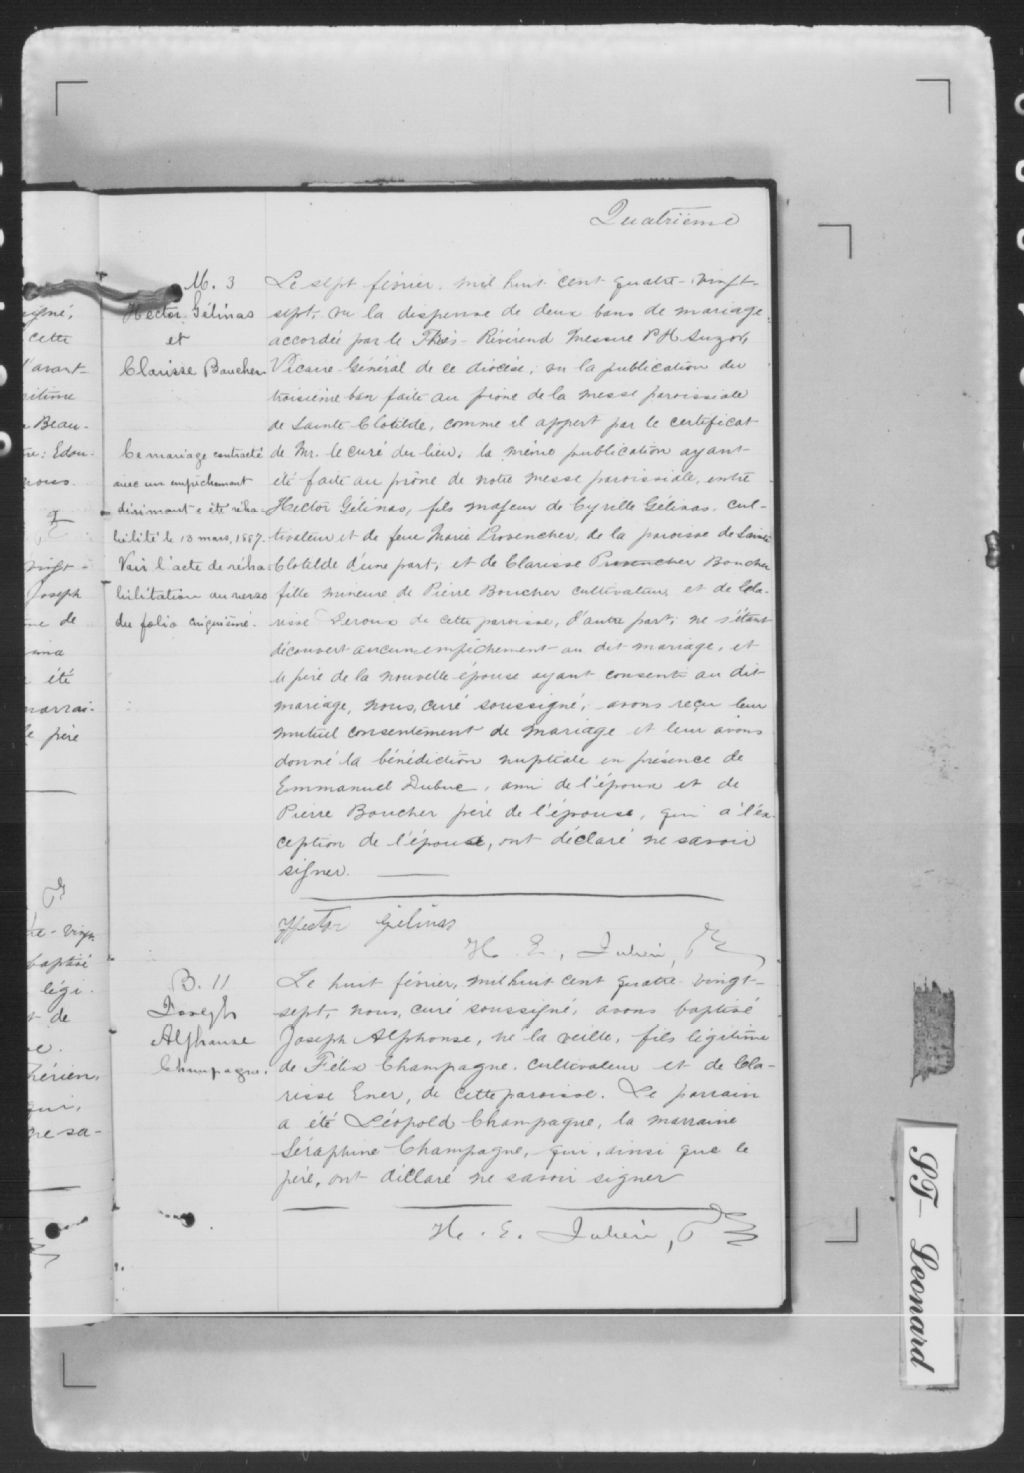 Quatrième
M. 3
Hector Gélinas
et
Clarisse Boucher
Ce mariage contracté
avec un empêchement
dirimant a été réha-
bilité le 13 mars, 1887.
Voir l'acte de réha-
bilitation au verso
du folio cinquième.
Le sept février, mil huit cent quatre-vingt-
sept, vu la dispense de deux bans de mariage
accordée par le Très-Révérend Messire P H Suzor,
Vicaire-Général de ce diocèse; vu la publication du
troisième ban faite au prône de la messe paroissiale
de Sainte Clotilde, comme il appert par le certificat
de Mr. le curé du lieu, la même publication ayant
été faite au prône de notre messe paroissiale, entre
Hector Gélinas, fils majeur de Cyrille Gélinas, cul-
tivateur et de feue Marie Provencher, de la paroisse de Sainte
Clotilde d'une part; et de Clarisse Provencher Boucher
fille mineure de Pierre Boucher cultivateur, et de Cla-
risse Leroux de cette paroisse, d'autre part; ne s'étant
découvert aucun empêchement au dit mariage, et
le père de la nouvelle épouse ayant consenti au dit
mariage, nous, curé soussigné, avons reçu leur
mutuel consentement de mariage et leur avons
donné la bénédiction nuptiale en présence de
Emmanuel Dubuc, ami de l'époux et de
Pierre Boucher père de l'épouse, qui à l'ex-
ception de l'épouse, ont déclaré ne savoir
signer.
Hector Gélinas
H. E. Julien, Ptre
B. 11
Joseph
Alphonse
Champagne.
Le huit février, mil huit cent quatre-vingt-
sept, nous, curé soussigné, avons baptisé
Joseph Alphonse, né la veille, fils légitime
de Félix Champagne, cultivateur et de Cla-
risse Ener, de cette paroisse. Le parrain
a été Léopold Champagne, la marraine
Séraphine Champagne, qui, ainsi que le
père, ont déclaré ne savoir signer
H. E. Julien, Ptre
igné,
cette
l'avant-
gitime
Beau-
Edou-
nous
vingt-
Joseph
de
été
marrai-
le père
vingt
baptisé
légi-
de
qui,
ne sa-
ST- Leonard